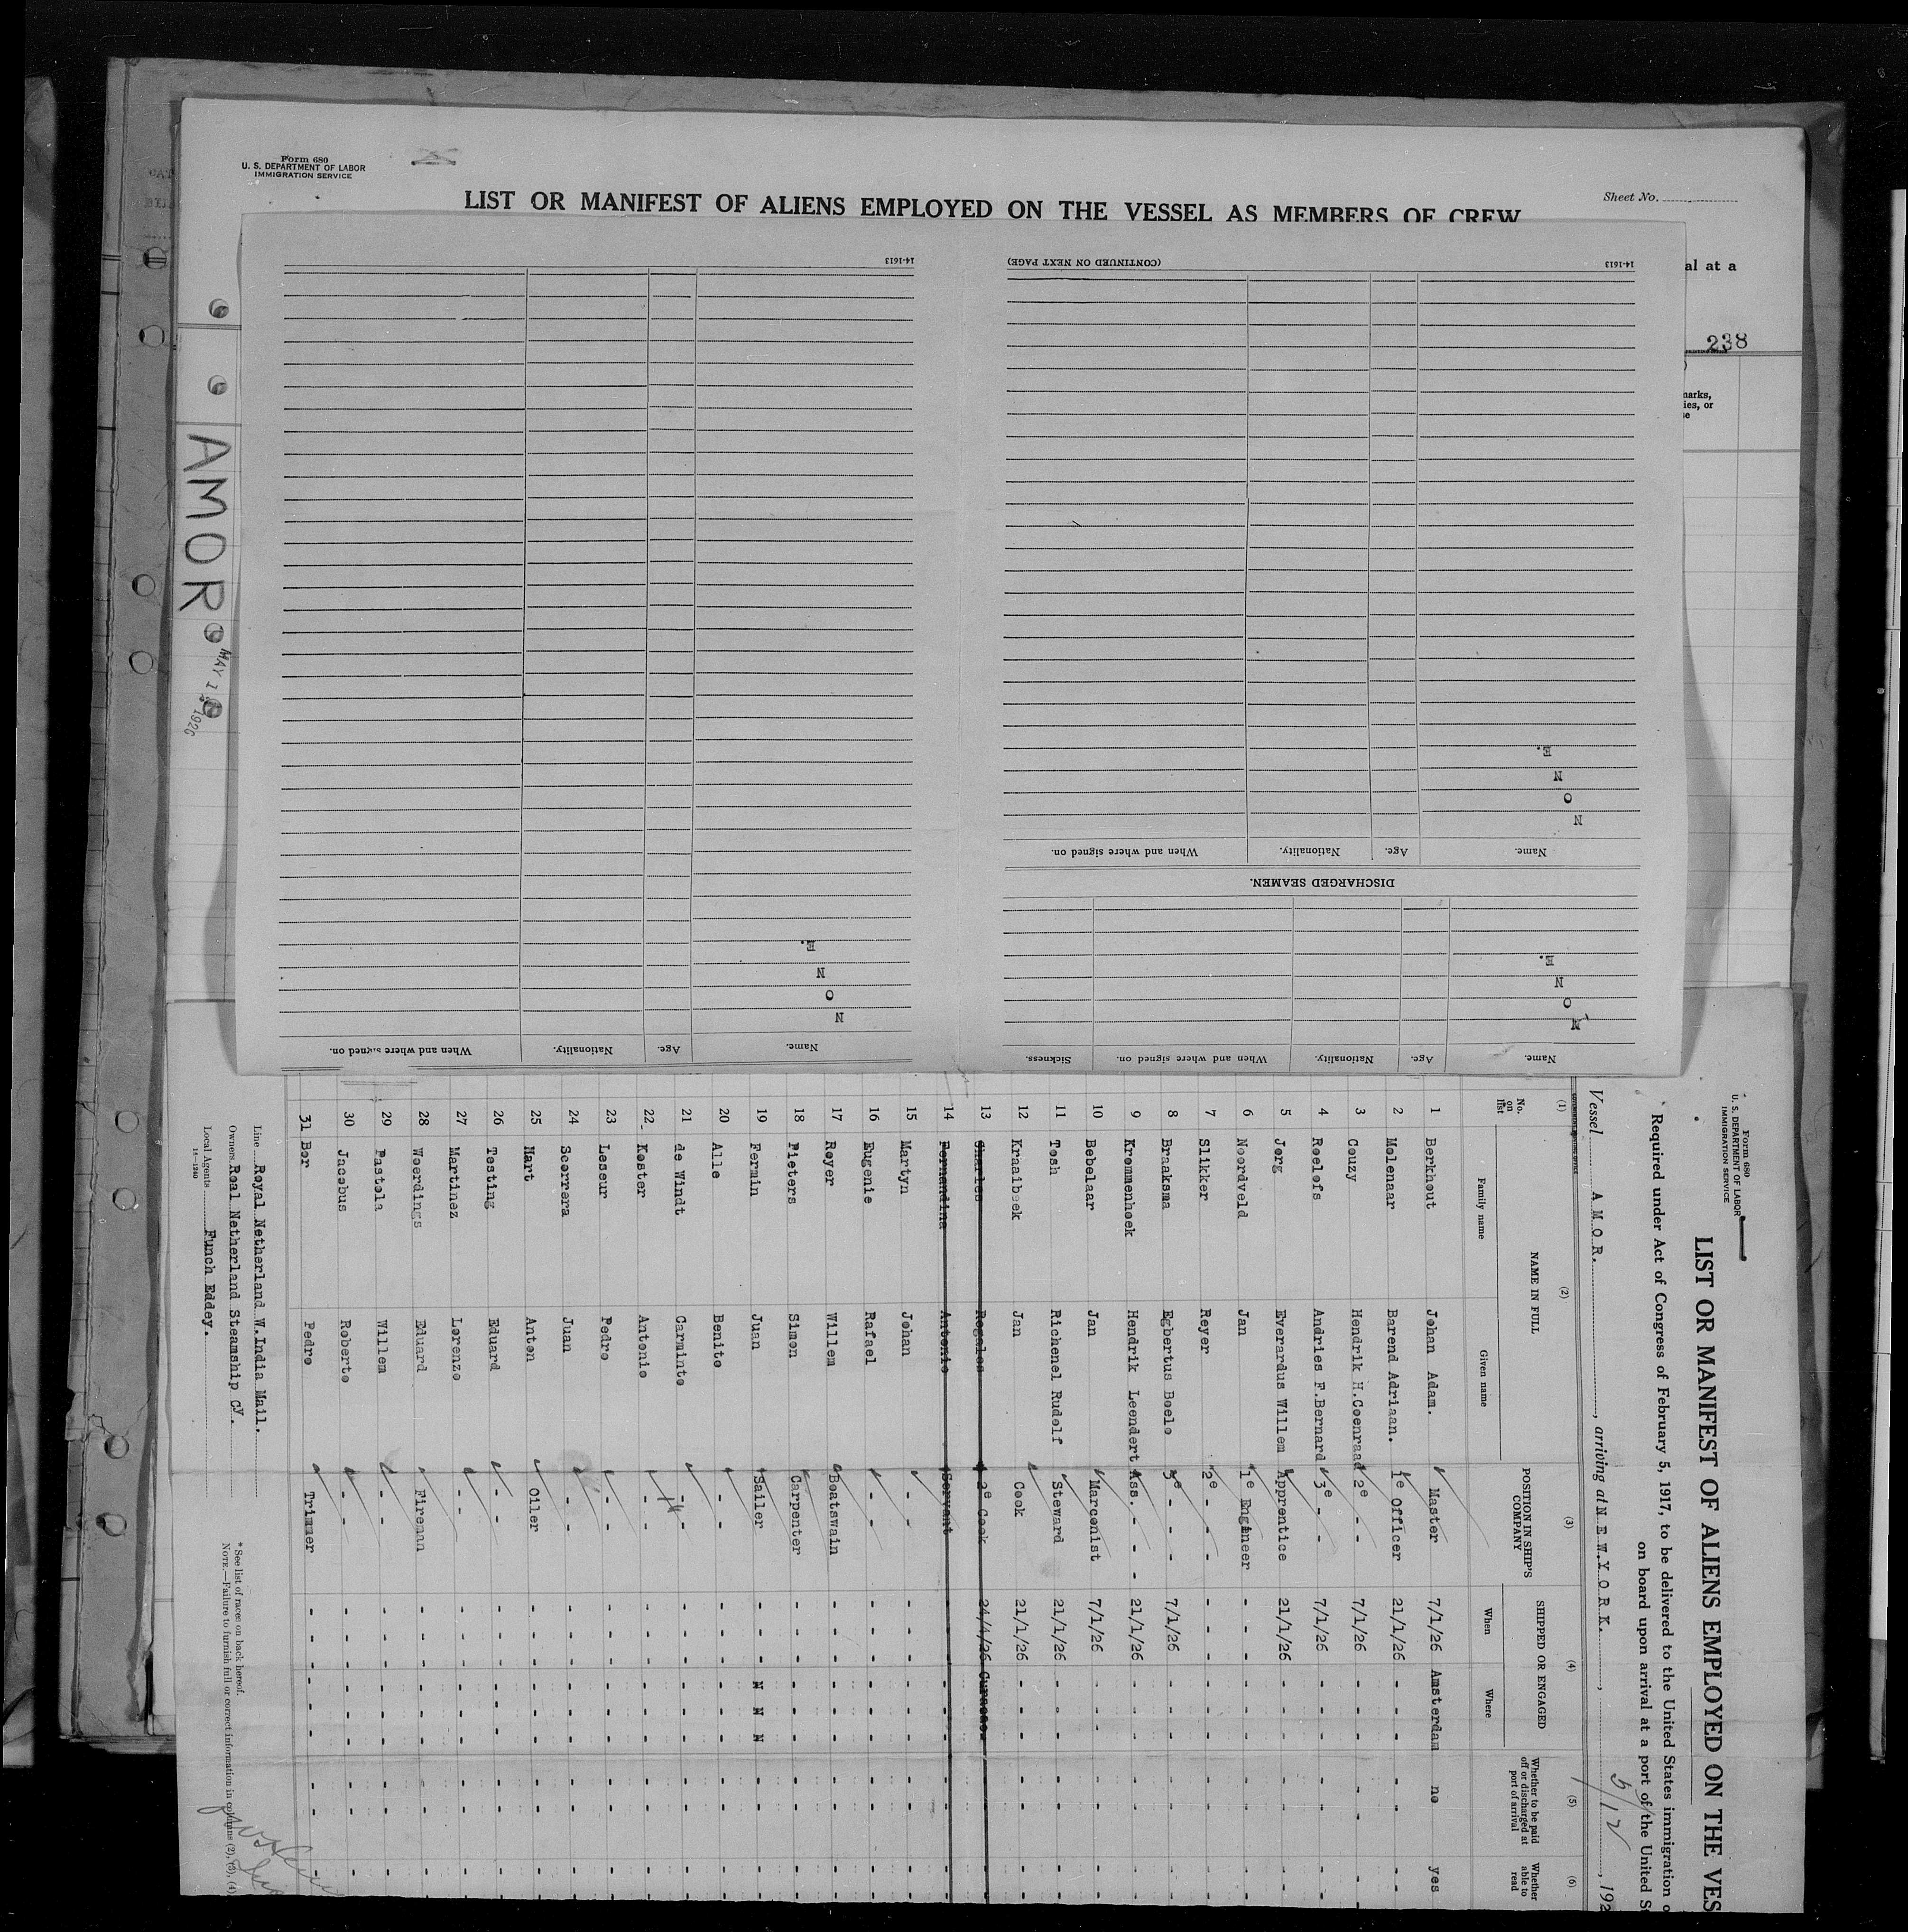 Form 680
U. S. DEPARTMENT OF LABOR
IMMIGRATION SERVICE
Sheet No.
LIST OR MANIFEST OF ALIENS EMPLOYED ON THE VESSEL AS MEMBERS OF CREW
al at a
238
marks,
ies, or
AMOR
MAY 1 1926
14-1613
(CONTINUED ON NEXT PAGE)
14-1613
N
O
N
E.
Name. Age. Nationality. When and where signed on.
DISCHARGED SEAMEN.
N
O
N
E.
Name. Age. Nationality. When and where signed on. Sickness.
N
O
N
E.
Name. Age. Nationality. When and where signed on.
Form 680
U. S. DEPARTMENT OF LABOR
IMMIGRATION SERVICE
LIST OR MANIFEST OF ALIENS EMPLOYED ON THE VES
Required under Act of Congress of February 5, 1917, to be delivered to the United States immigration o
on board upon arrival at a port of the United S
Vessel AMOR. , arriving at NEW YORK. , 5/12 , 192
(1) (2) (3) (4) (5) (6)
No. on list NAME IN FULL POSITION IN SHIP'S COMPANY SHIPPED OR ENGAGED Whether to be paid off or discharged at port of arrival Whether able to read
Family name Given name When Where
1 Berkhout Johan Adam. Master 7/1/26 Amsterdam no yes
2 Molenaar Barend Adriaan. 1e Officer 21/1/26 - - - -
3 Couzy Hendrik H.Coenraad 2e - - 7/1/26 - - - -
4 Roelofs Andries F.Bernard 3e - - 7/1/26 - - - -
5 Jorg Everardus Willem Apprentice 21/1/26 - - - -
6 Noordveld Jan 1e Engineer - - - - - -
7 Slikker Reyer 2e - - - - - - - -
8 Braaksma Egbertus Boele 3e - - 7/1/26 - - - -
9 Krommenhoek Hendrik Leendert Ass. - - - 21/1/26 - - - -
10 Bebelaar Jan Marconist 7/1/26 - - - -
11 Tosh Richenel Rudolf Steward 21/1/26 - - - -
12 Kraaibeek Jan Cook 21/1/26 - - - -
13 Charles Rogales 2e Cook 24/4/26 Curacao. - -
14 Fernandina Antonio Servant - - - - - -
15 Martyn Johan - - - - - - - -
16 Eugenie Rafael - - - - - - - -
17 Royer Willem Boatswain - - - - - -
18 Pieters Simon Carpenter - - - - - -
19 Fermin Juan Sailer - - - N N N - -
20 Alle Benito - - - - - - - -
21 de Windt Carminto - - - - - - - -
22 Koster Antonio - - - - - - - -
23 Leseur Pedro - - - - - - - -
24 Scorrera Juan - - - - - - - -
25 Hart Anton Oiler - - - - - -
26 Tosting Eduard - - - - - - - -
27 Martinez Lorenzo - - - - - - - -
28 Woerdings Eduard Fireman - - - - - -
29 Pastola Willem - - - - - - - -
30 Jacobus Roberto - - - - - - - -
31 Bor Pedro Trimmer - - - - - -
Line Royal Netherland W.India Mail.
Owners Roal Netherland Steamship Cy.
Local Agents Funch Eddey.
14-1240
* See list of races on back hereof.
NOTE.—Failure to furnish full or correct information in columns (2), (3), (4)